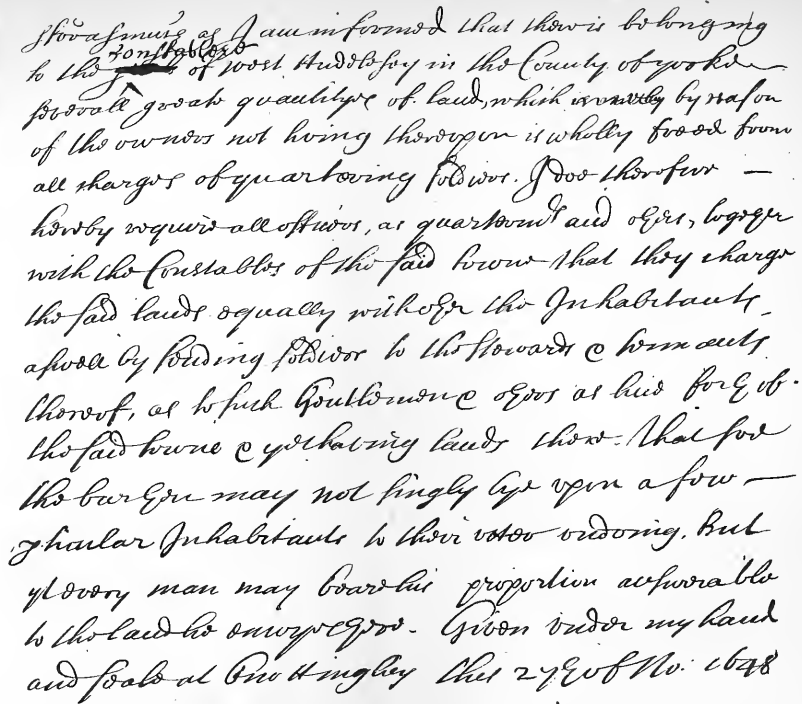 fforasmuch as I am informed that there is belonging
Constablere
to the of west Huddlesey in the County of yorke
severall greate quantityes of land, which by reason
of the owners not living thereupon is wholly freed from
all charges of quartering soldiers. I doe therefore —
hereby require all officers, as quarterm^rs and others, together
with the Constables of the said towne that they charge
the said lands equally with other the Inhabitants
aswell by sending soldiers to the stewards & tennants
thereof, as to such Gentlemen & others as live forth of
the said towne & yet having lands there. That soe
the burthen may not singly lye upon a few —
pticular Inhabitants to their utter undoing. But
yt every man may beare his proportion answerable
to the land he enioyes there. Given under my hand
and seale at Knottingley this 27th of No: 1648